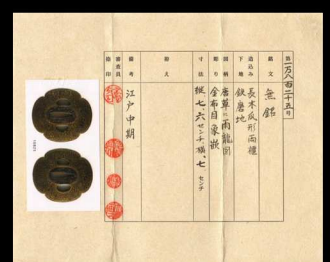 第一万八百二十五号
銘文
無銘
造込み
長木瓜形両櫃
下地
鉄磨地
図柄
唐草に雨龍図
飾り
金布目象嵌
寸法
縦七、六センチ横、七センチ
附え
備考
江戸中期
審査員